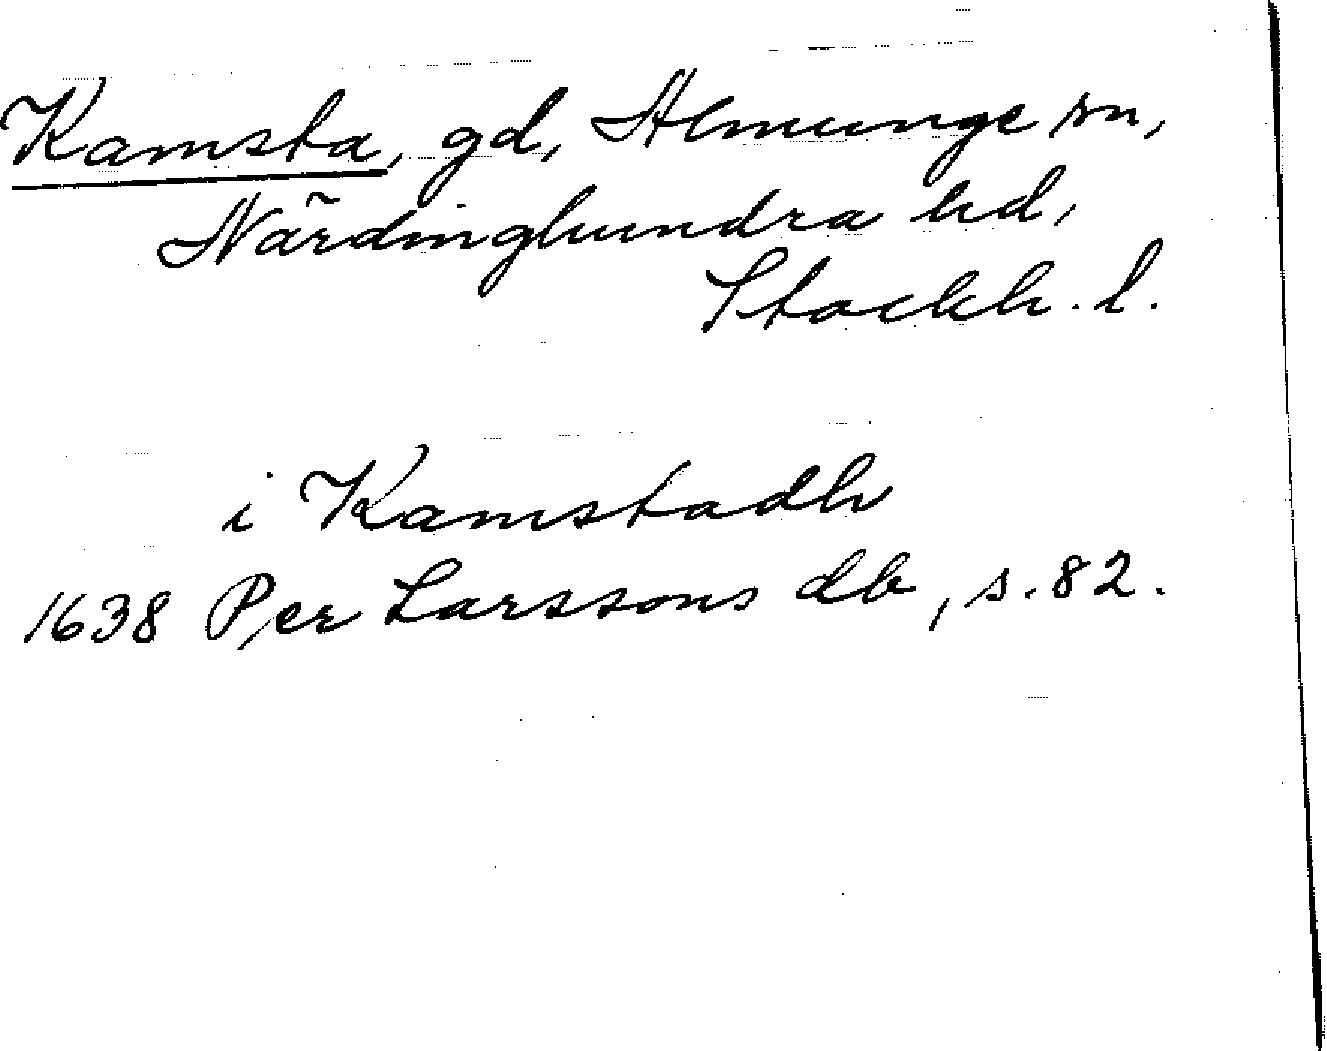 Kamsta, gd, Almunge sn,
Närdinghundra hd,
Stockh. l.
i Kamstadh
1638 Per Larssons db, s. 82.